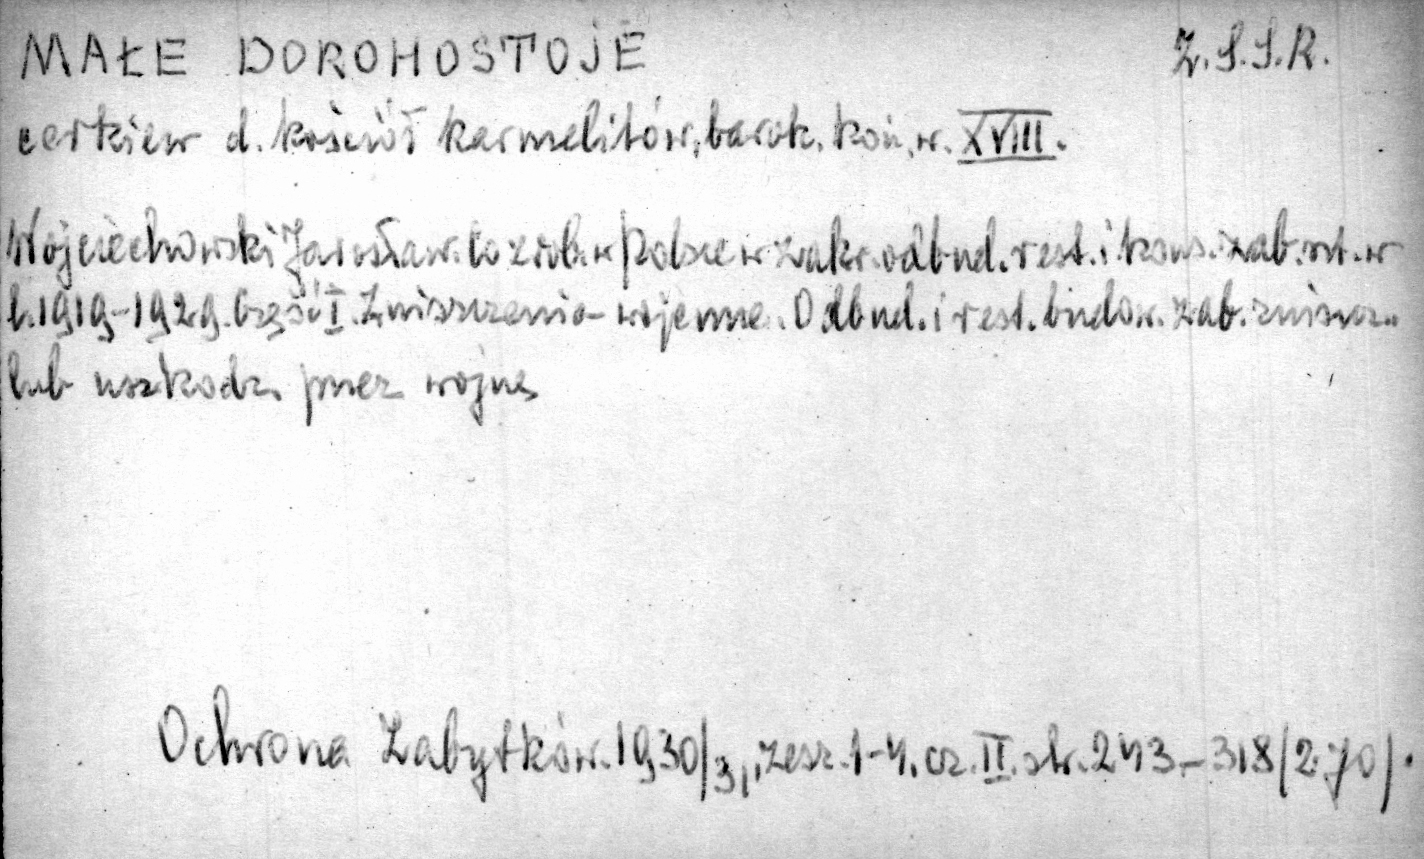 MAŁE DOROHOSTOJE Z.S.S.R.
cerkiew d. kościół karmelitów, barok. kon. w. XVIII.
Wojciechowski Jarosław. Co zrob. w Polsce w zakr. odbud. rest. i kons. zab. szt. w
l. 1919-1929. Część I. Zniszczenia wojenne. Odbud. i rest. budow. zab. zniszcz.
lub uszkodz. przez wojnę
Ochrona Zabytków. 1930/31, zesz. 1-4. cz. II. str. 243-318/270/.